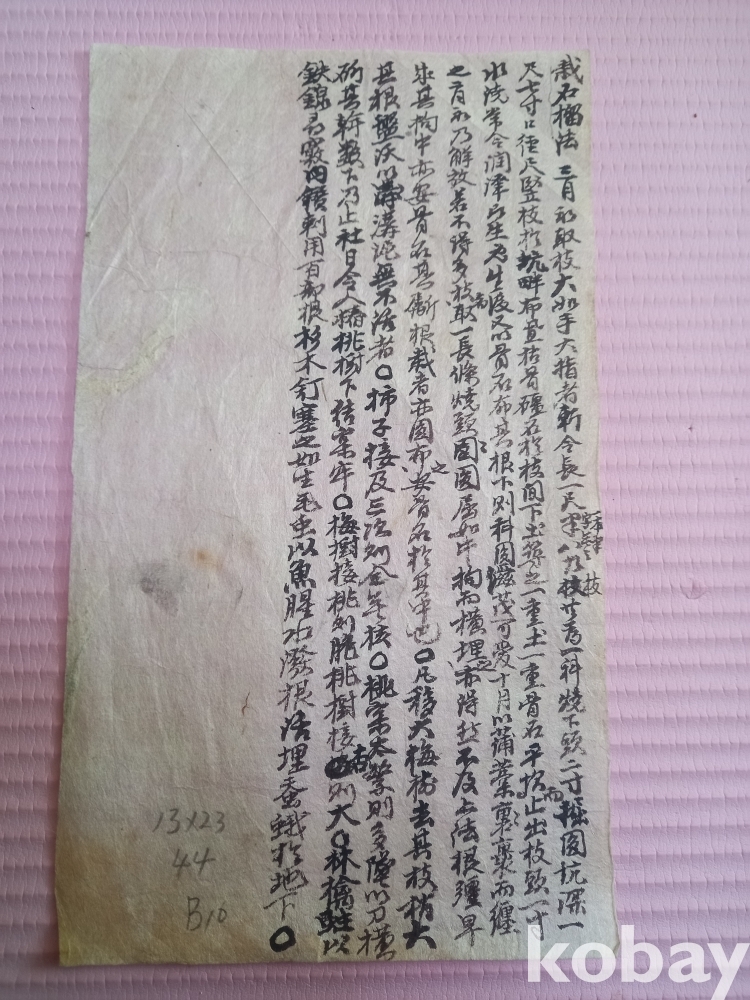 栽石榴法 三月初取枝大如手大指者斬令長一尺半八九枝共為一科燒下頭二寸掘圓坑深一
尺七寸口徑尺豎枝於坑畔布置枯骨礓石於枝間下土築之一重土一重骨石平坎止出枝頭一寸
水澆常令潤澤既生又以骨石布其根下則科圓滋茂可愛十月以蒲藁裹而纏
之二月初乃解放若不得多枝取一長條燒頭圓屈如牛拘而橫埋之亦得然不及上法根彊早
成其拘中亦安骨石其斸根栽者亦圓布之安骨石於其中也〇凡移大梅樹去其枝梢大
其根盤沃以溝泥無不活者〇柿子接及三次則全無核〇桃實太繁則多墜以刀橫
斫其幹數下乃止社日令人椿桃樹下結實牢〇梅樹接桃則脆桃樹接杏則大〇林檎蛀以
鉄線尋竅內鑽刺用百部根杉木釘塞之如生毛虫以魚腥水潑根活埋蚕蛾於地下〇
13×23
44
B10
kobay